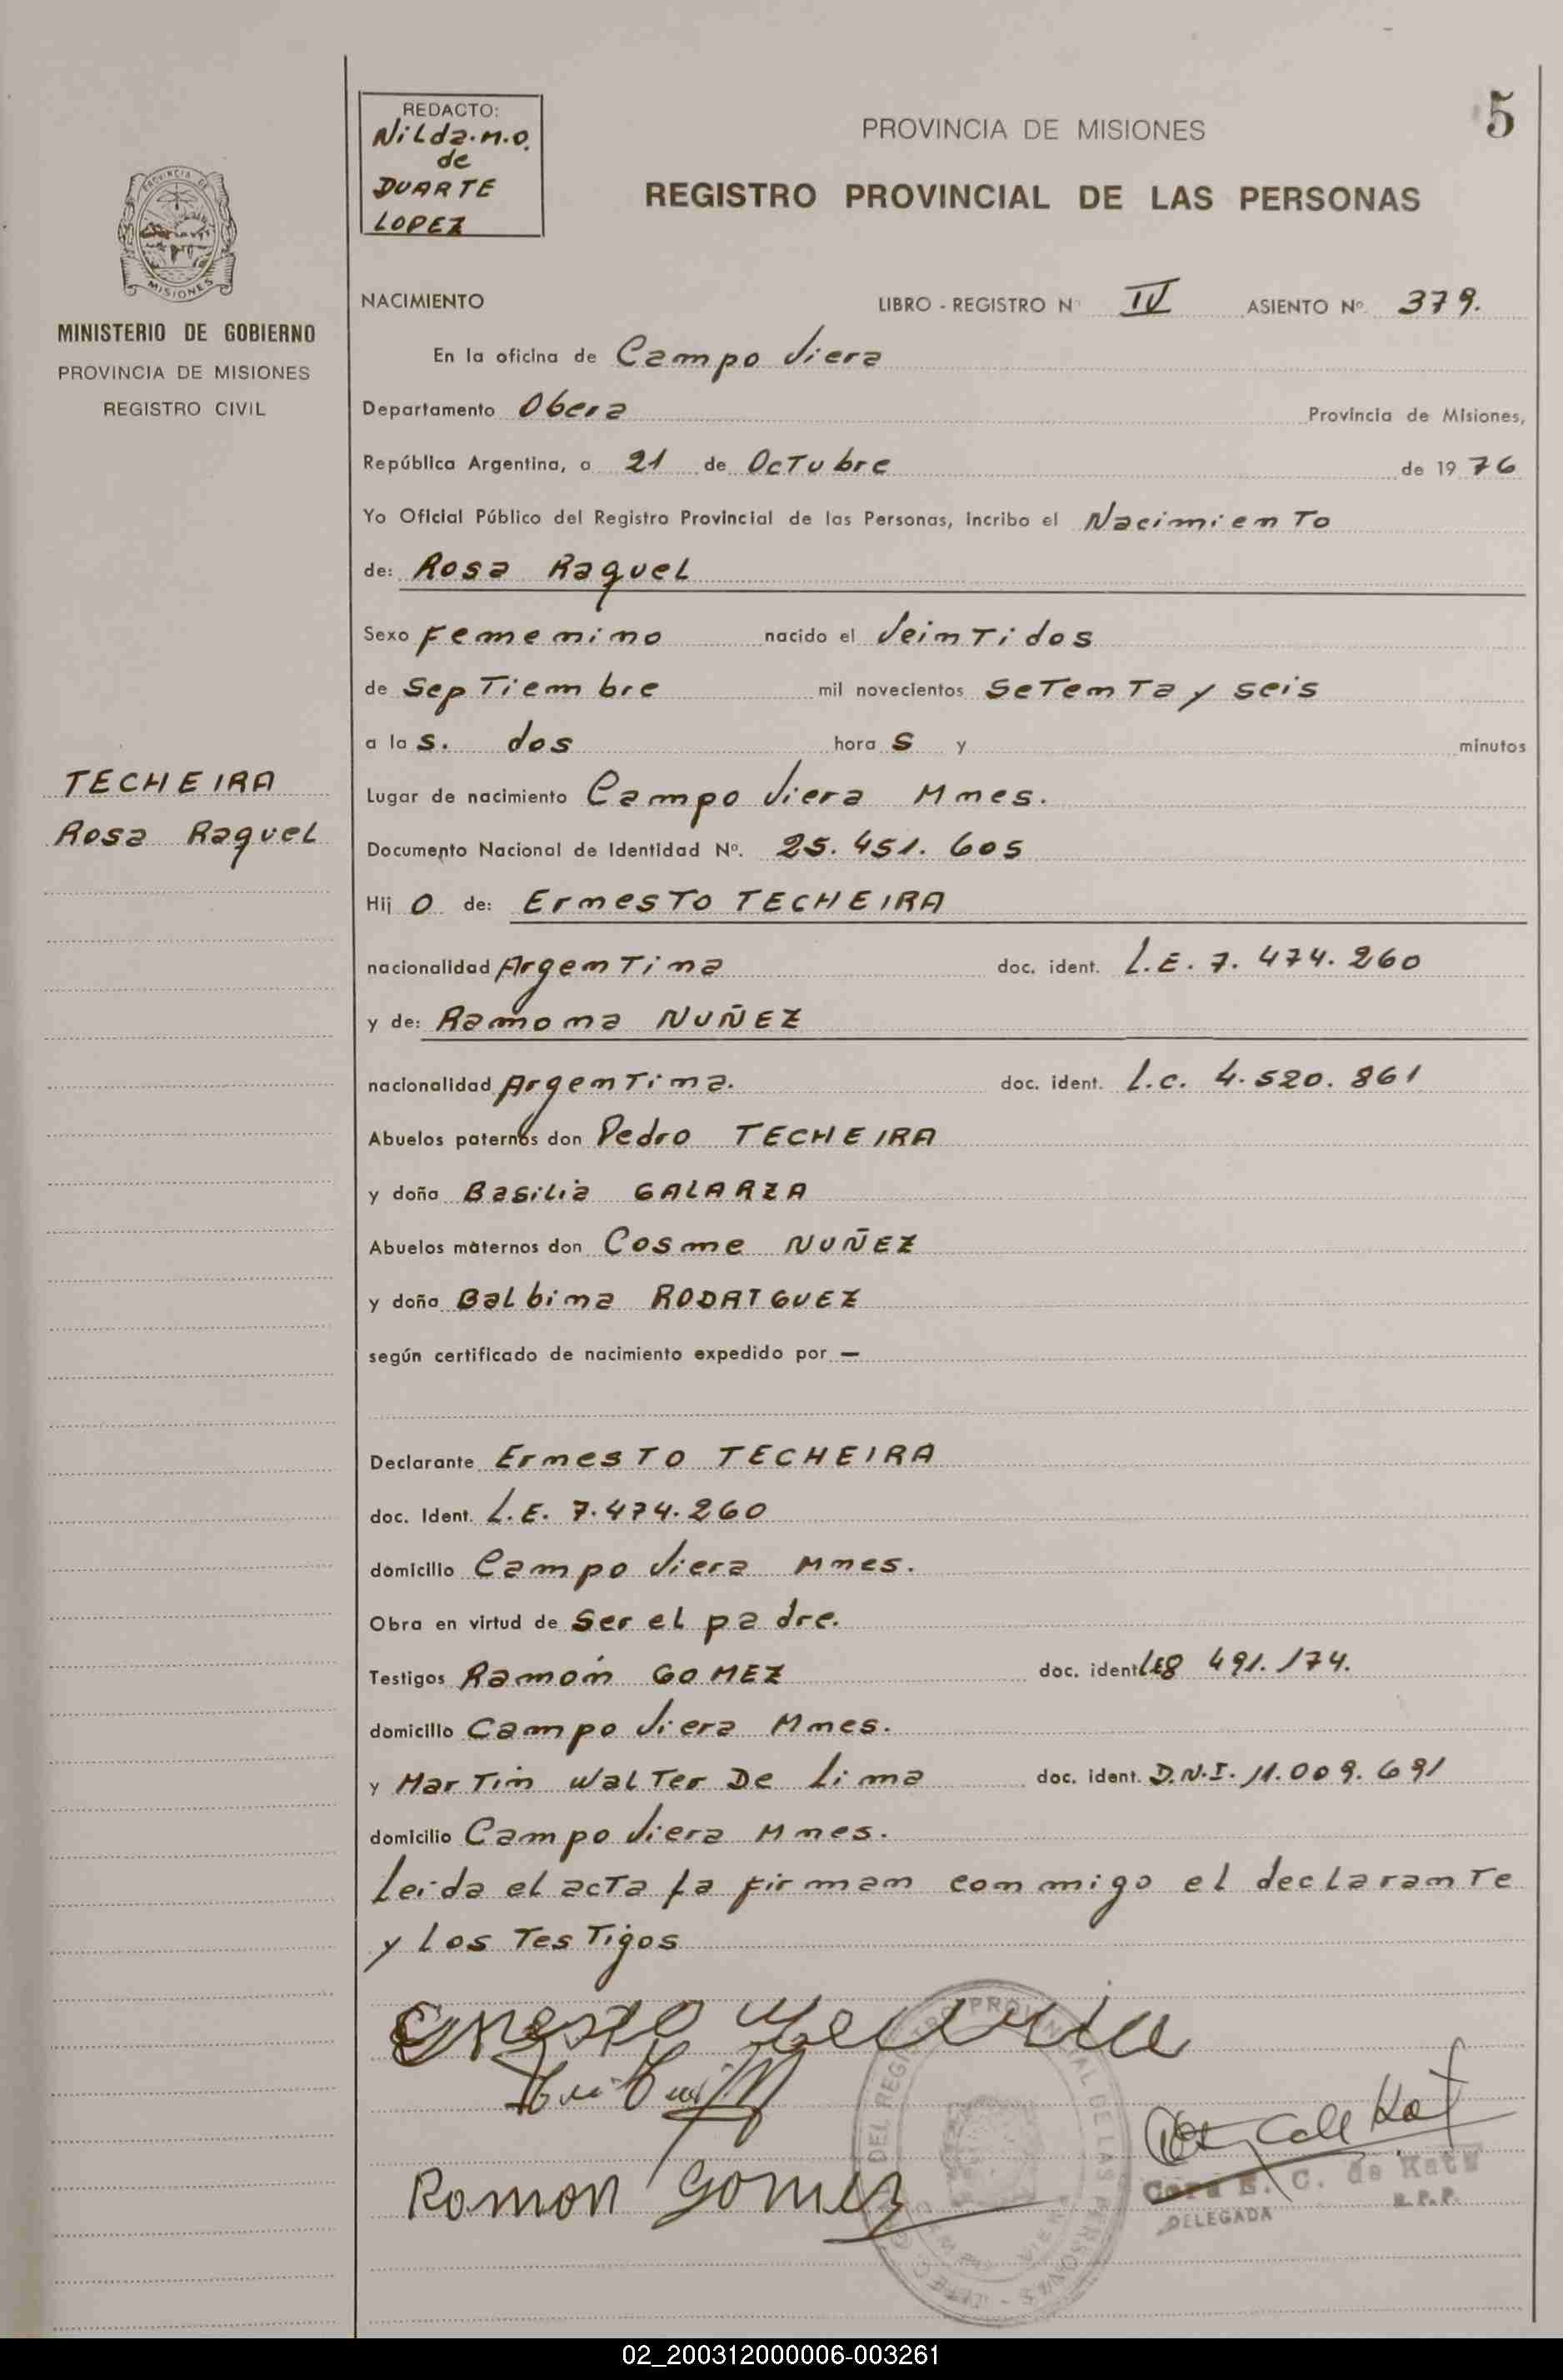 REDACTO:
Nilda.M.O.
de
DUARTE
LOPEZ
5
PROVINCIA DE MISIONES
REGISTRO PROVINCIAL DE LAS PERSONAS
PROVINCIA DE
MISIONES
MINISTERIO DE GOBIERNO
PROVINCIA DE MISIONES
REGISTRO CIVIL
NACIMIENTO LIBRO - REGISTRO Nº IV ASIENTO Nº. 379.
En la oficina de Campo Viera
Departamento Obera Provincia de Misiones,
República Argentina, a 21 de Octubre de 1976
Yo Oficial Público del Registro Provincial de las Personas, incribo el Nacimiento
de: Rosa Raquel
Sexo Femenino nacido el Veintidos
de Septiembre mil novecientos Setenta y seis
a las. dos horas y minutos
TECHEIRA
Rosa Raquel
Lugar de nacimiento Campo Viera Mnes.
Documento Nacional de Identidad Nº. 25.451.605
Hijo de: Ernesto TECHEIRA
nacionalidad Argentina doc. ident. L.E. 7.474.260
y de: Ramona NUÑEZ
nacionalidad Argentina. doc. ident. L.C. 4.520.861
Abuelos paternos don Pedro TECHEIRA
y doña Basilia GALARZA
Abuelos maternos don Cosme NUÑEZ
y doña Balbina RODRIGUEZ
según certificado de nacimiento expedido por —
Declarante Ernesto TECHEIRA
doc. Ident. L.E. 7.474.260
domicilio Campo Viera Mnes.
Obra en virtud de Ser el padre.
Testigos Ramón GOMEZ doc. ident LE8 491.174.
domicilio Campo Viera Mnes.
y Martín Walter De Lima doc. ident. D.N.I. 11.009.691
domicilio Campo Viera Mnes.
Leida el acta la firman conmigo el declarante
y los Testigos
Ernesto Techeira
Ramon Gomez
DEL REGISTRO PROVINCIAL DE LAS PERSONAS
CAMPO VIERA
E. C. de Katz
DELEGADA R.P.P.
02_200312000006-003261